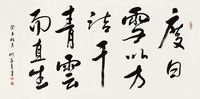 度白
雪以方
洁干
青雲
而直上